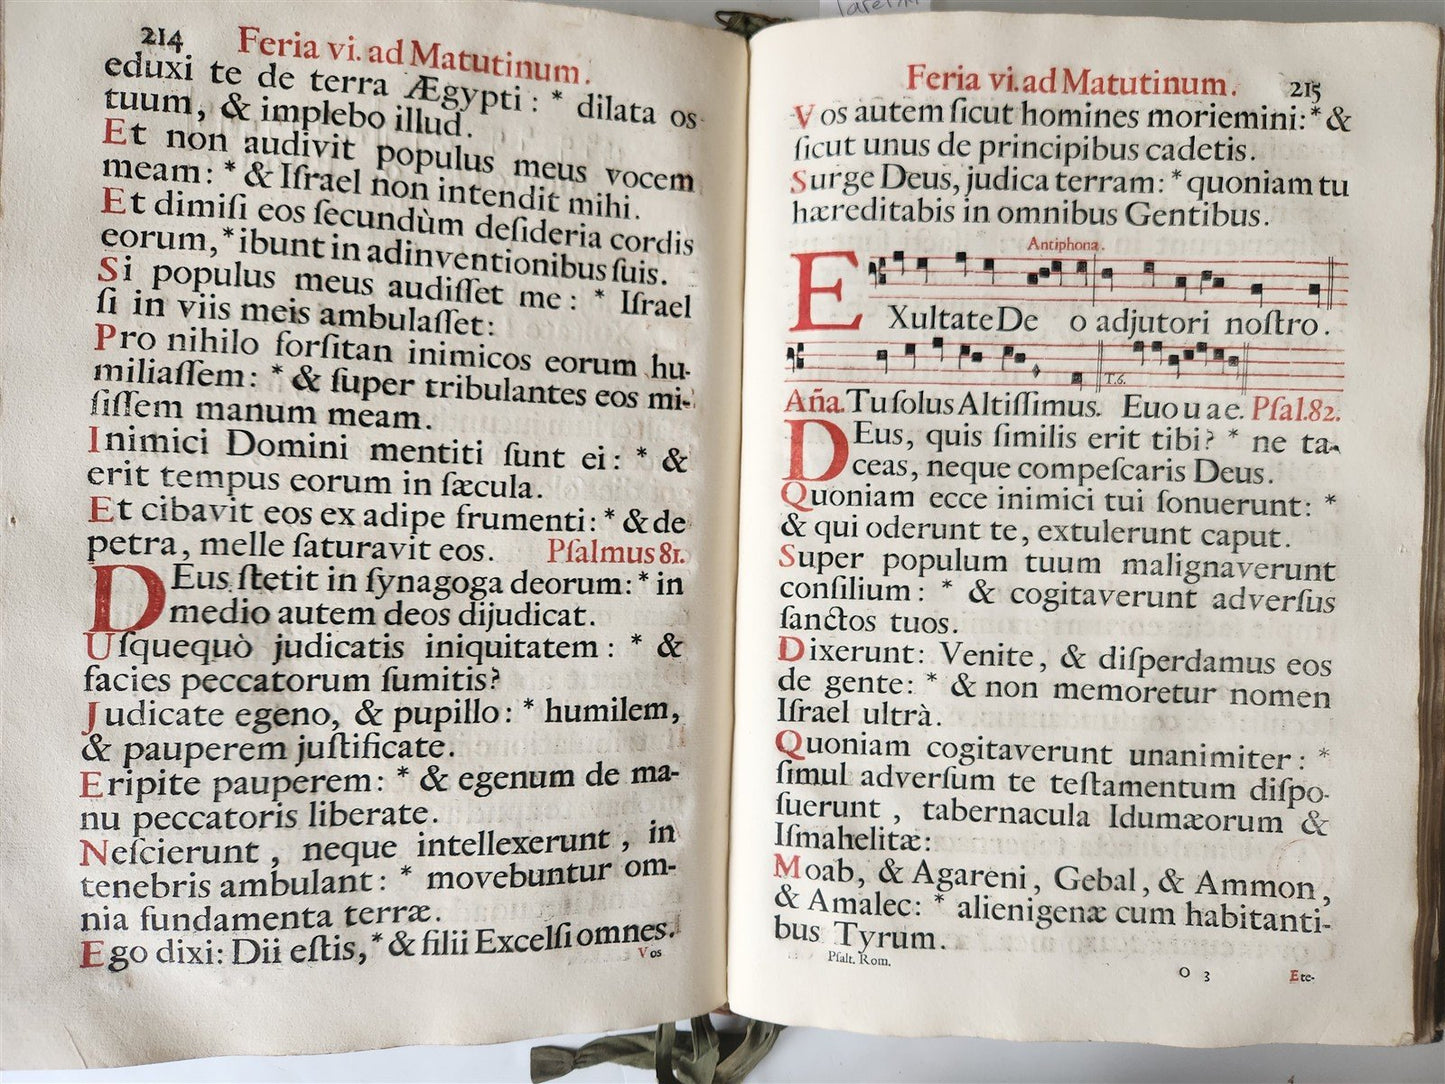 214 Feria vi. ad Matutinum.
eduxi te de terra Ægypti : * dilata os
tuum, & implebo illud.
Et non audivit populus meus vocem
meam : * & Iſrael non intendit mihi.
Et dimiſi eos ſecundùm deſideria cordis
eorum, * ibunt in adinventionibus ſuis.
Si populus meus audiſſet me : * Iſrael
ſi in viis meis ambulaſſet:
Pro nihilo forſitan inimicos eorum hu-
miliaſſem : * & ſuper tribulantes eos mi-
ſiſſem manum meam.
Inimici Domini mentiti ſunt ei : * &
erit tempus eorum in ſæcula.
Et cibavit eos ex adipe frumenti : * & de
petra, melle ſaturavit eos. Pſalmus 81.
DEus ſtetit in ſynagoga deorum: * in
medio autem deos dijudicat.
Uſquequò judicatis iniquitatem : * &
facies peccatorum ſumitis?
Judicate egeno, & pupillo : * humilem,
& pauperem juſtificate.
Eripite pauperem : * & egenum de ma-
nu peccatoris liberate.
Neſcierunt , neque intellexerunt , in
tenebris ambulant : * movebuntur om-
nia fundamenta terræ.
Ego dixi: Dii eſtis, * & filii Excelſi omnes.
Vos
Feria vi. ad Matutinum. 215
Vos autem ſicut homines moriemini: * &
ſicut unus de principibus cadetis.
Surge Deus, judica terram: * quoniam tu
hæreditabis in omnibus Gentibus.
Antiphona.
EXultate Deo adjutori noſtro.
T.6.
Aña. Tu ſolus Altiſſimus. Euouae. Pſal.82.
DEus, quis ſimilis erit tibi? * ne ta-
ceas, neque compeſcaris Deus.
Quoniam ecce inimici tui ſonuerunt: *
& qui oderunt te, extulerunt caput.
Super populum tuum malignaverunt
conſilium : * & cogitaverunt adverſus
ſanctos tuos.
Dixerunt: Venite, & diſperdamus eos
de gente: * & non memoretur nomen
Iſrael ultrà.
Quoniam cogitaverunt unanimiter : *
ſimul adverſum te teſtamentum diſpo-
ſuerunt , tabernacula Idumæorum &
Iſmahelitæ:
Moab, & Agareni, Gebal, & Ammon,
& Amalec: * alienigenæ cum habitanti-
bus Tyrum.
Pſalt. Rom.
O 3 Ete-